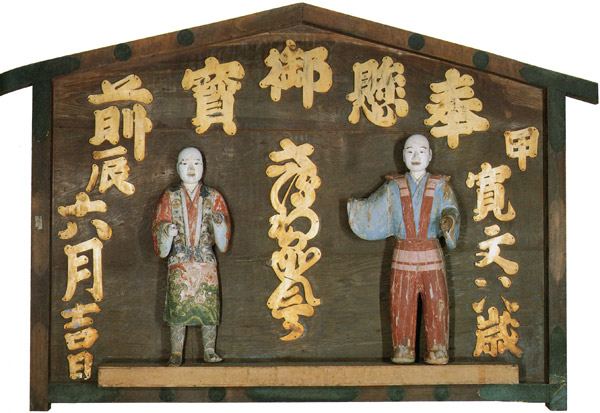 奉懸御寶前
甲
寛文歳
辰
六月吉日